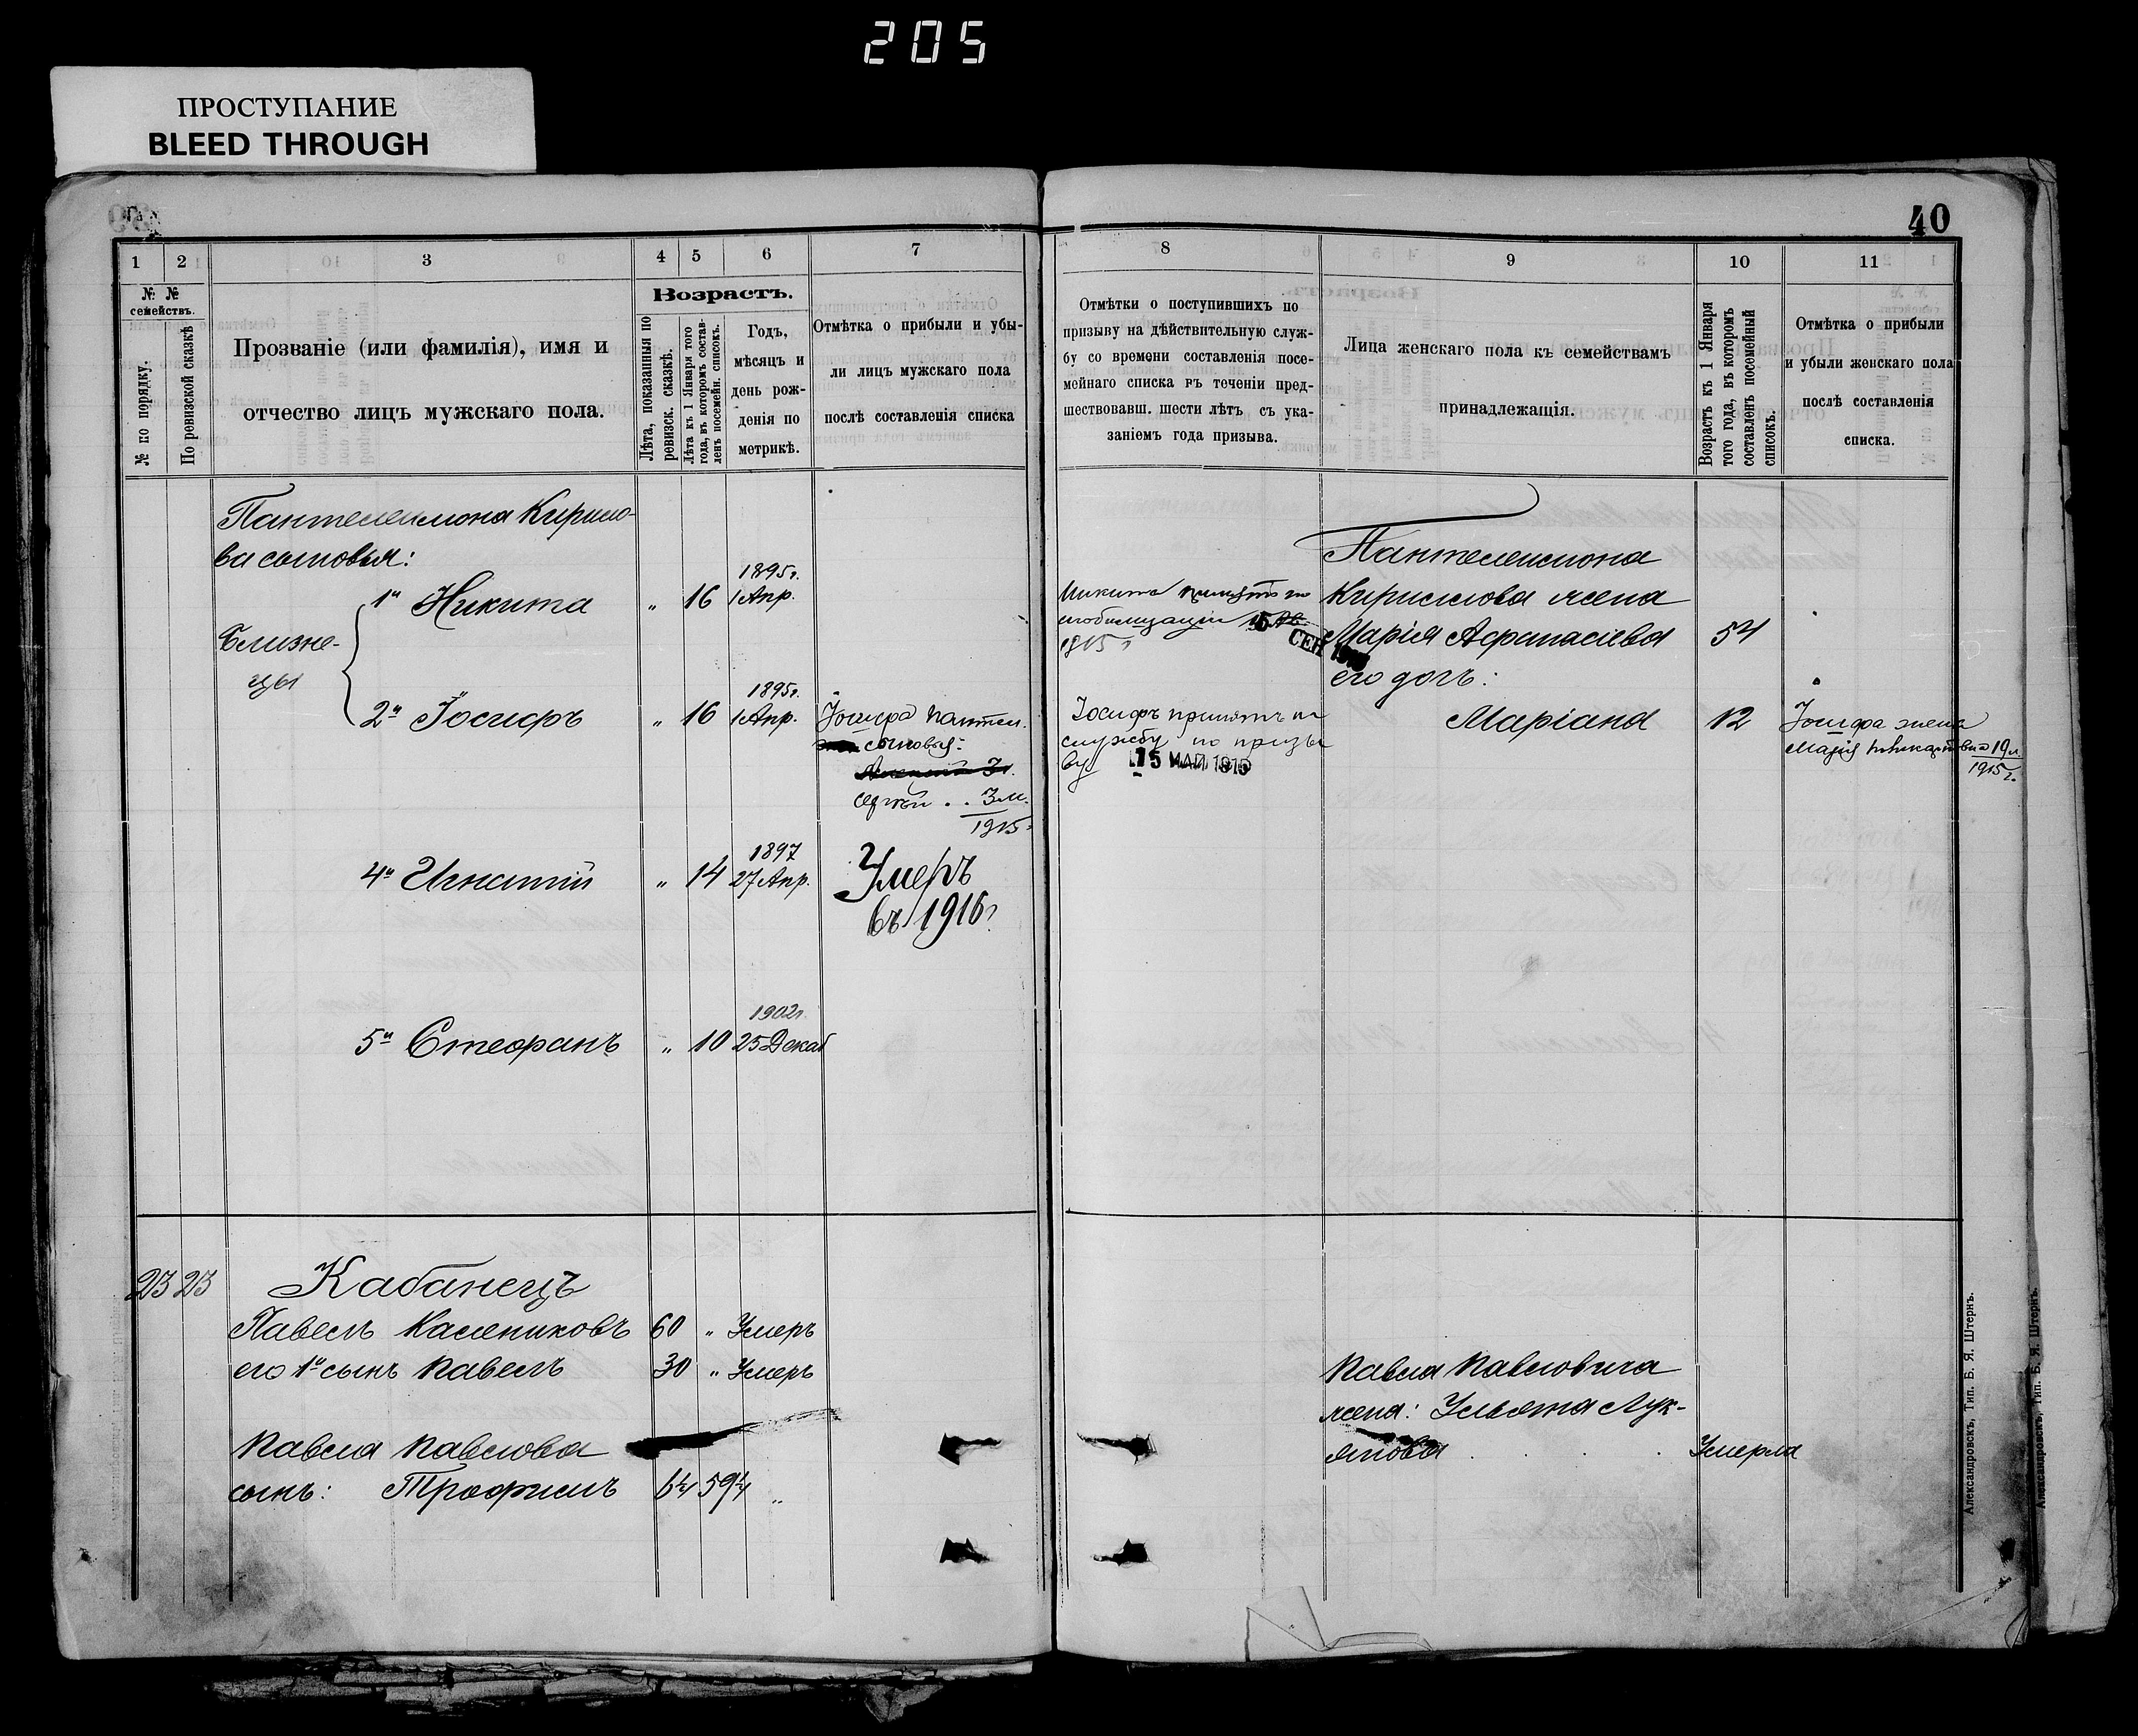 205
ПРОСТУПАНИЕ
BLEED THROUGH
40
1 2 3 4 5 6 7
№ № семействъ.
№ по порядку.
По ревизской сказкѣ
Прозваніе (или фамилія), имя и
отчество лицъ мужскаго пола.
Возрастъ.
Лѣта, показанныя по
ревизск. сказкѣ.
Лѣта къ 1 Января того
года, въ которомъ состав-
ленъ посемейн. списокъ.
Годъ,
мѣсяцъ и
день рож-
денія по
метрикѣ.
Отмѣтка о прибыли и убы-
ли лицъ мужскаго пола
послѣ составленія списка
Пантелеимона Кирило-
ва сыновья:
1895г.
1й Никита " 16 1 Апр.
Близне-
цы
1895г.
2й Іосифъ " 16 1 Апр.
Іосифа Пантел.
сыновья:
Сергѣй . . 3 м.
1915г.
1897
4й Игнатій " 14 27 Апр.
Умеръ
въ 1916г.
1902г.
5й Стефанъ " 10 25 Декаб
23 23 Кабанецъ
Павелъ Калениковъ 60 " Умеръ
его 1й сынъ Павелъ 30 " Умеръ
Павла Павлова
сынъ: Трофимъ 6¼ 59¼ "
8 9 10 11
Отмѣтки о поступившихъ по
призыву на дѣйствительную служ-
бу со времени составленія посе-
мейнаго списка въ теченіи пред-
шествовавш. шести лѣтъ съ ука-
заніемъ года призыва.
Лица женскаго пола къ семействамъ
принадлежащія.
Возрастъ къ 1 Января
того года, въ которомъ
составленъ посемейный
списокъ.
Отмѣтка о прибыли
и убыли женскаго пола
послѣ составленія
списка.
Никита принятъ по
мобилизаціи
1915 г
СЕН
Іосифъ принятъ на
службу по призы
ву 15 МАЙ 1915
Пантелеимона
Кириллова жена
Марія Афанасіева 54
его дочь:
Маріана 12
Іосифа жена
Марія 19 л.
1915г.
Павла Павловича
жена: Ульяна Лук-
янова . . . Умерла
Александровскъ, Тип. Б. Я. Штернъ.
Александровскъ, Тип. Б. Я. Штернъ.